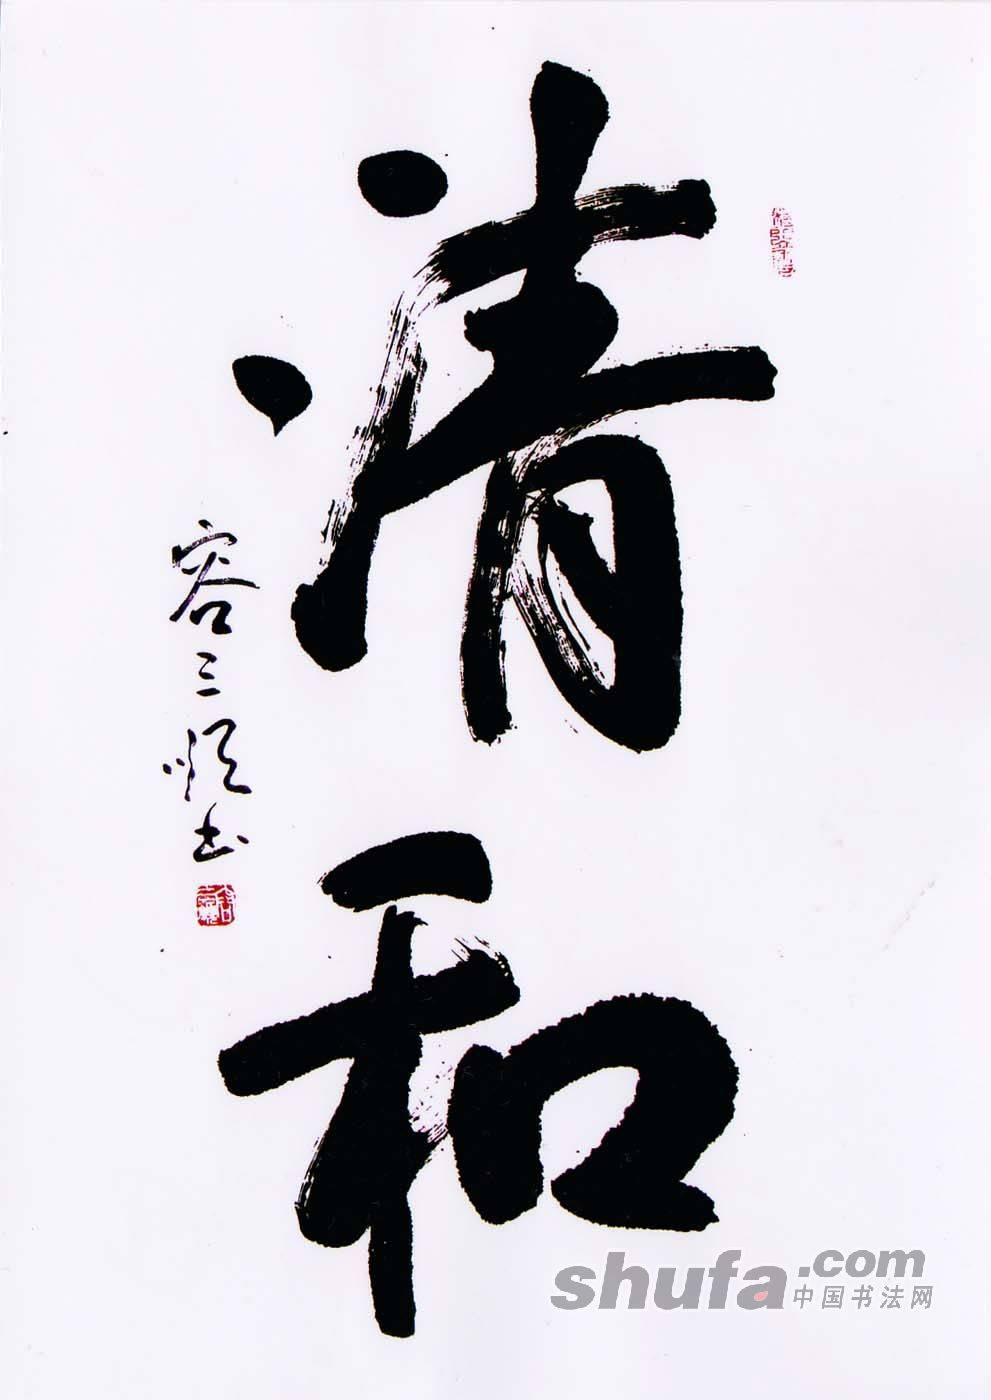 清和
容三顺书
shufa.com
中国书法网